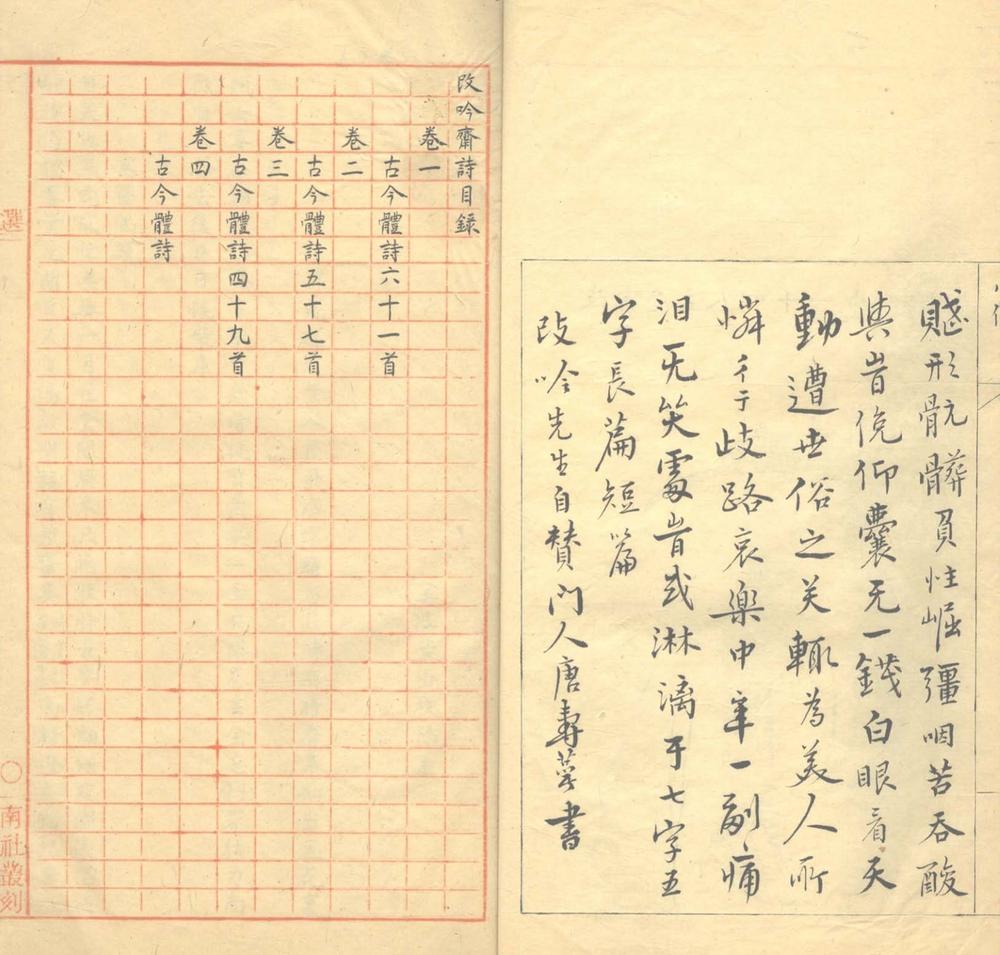 賤形骯髒負性崛彊咽苦吞酸
與旹俛仰囊无一錢白眼看天
動遭世俗之关輙為美人所
憐彳亍歧路哀樂中年一副痛
泪无旹或淋漓于七字五
字長篇短篇
改吟先生自賛門人唐壽蕚書
改吟齋詩目錄
卷一
古今體詩六十一首
卷二
古今體詩五十七首
卷三
古今體詩四十九首
卷四
古今體詩
選
南社叢刻